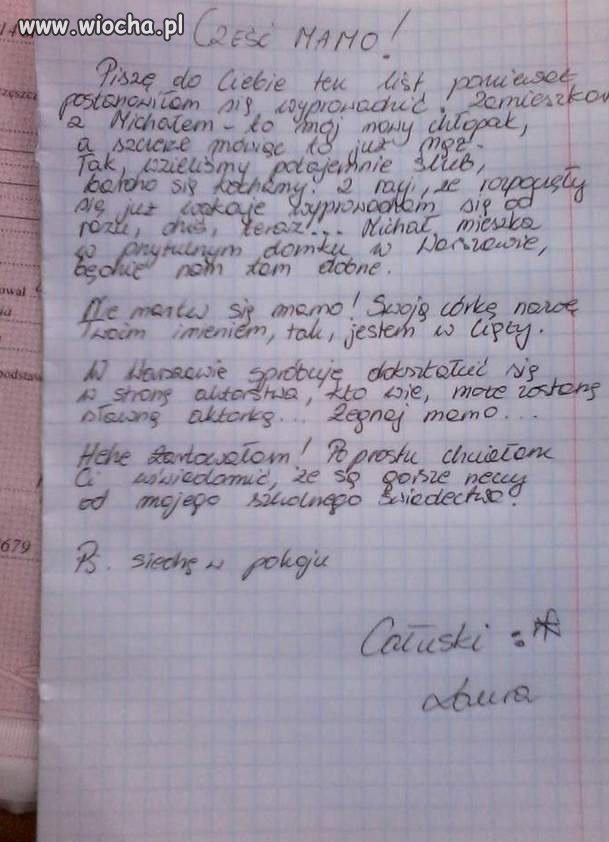 www.wiocha.pl
CZEŚĆ MAMO!
Piszę do Ciebie ten list ponieważ
postanowiłam się wyprowadzić. Zamieszkam
z Michałem - to mój nowy chłopak,
a szczerze mówiąc to już mąż.
Tak, wzieliśmy potajemnie ślub,
bardzo się kochamy! Z racji, że rozpoczęły
się już wakacje wyprowadzam się od
razu, dziś, teraz!... Michał mieszka
w przytulnym domku w Warszawie,
będzie nam tam dobrze.
Nie martw się mamo! Swoją córkę nazwę
Twoim imieniem, tak, jestem w ciąży.
W Warszawie spróbuję dokształcić się
w stronę aktorstwa, kto wie, może zostanę
sławną aktorką... Żegnaj mamo...
Hehe żartowałam! Po prostu chciałam
Ci uświadomić, że są gorsze rzeczy
od mojego szkolnego świadectwa!
PS. siedzę w pokoju
Całuski :*
Laura
679